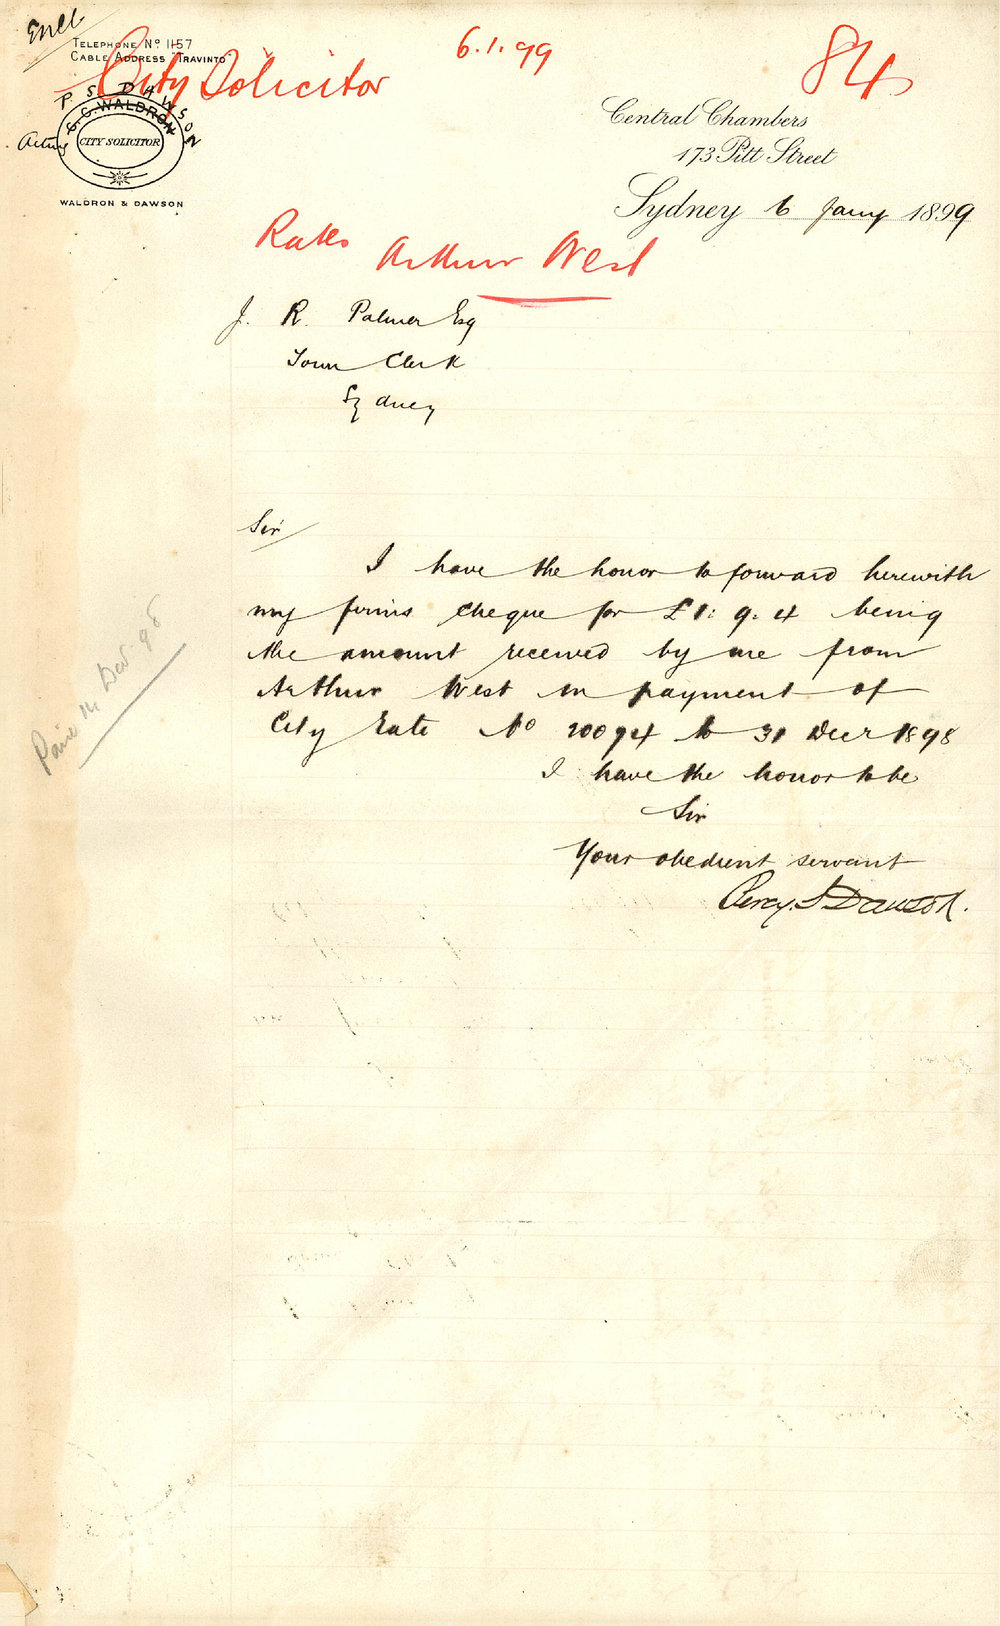 Encl
TELEPHONE Nº 1157
CABLE ADDRESS "TRAVINTO"
City Solicitor
6.1.99
84
P. S. DAWSON
Acting
G. C. WALDRON
CITY SOLICITOR
WALDRON & DAWSON
Central Chambers
173 Pitt Street
Sydney 6 Jany 1899
Rates
Arthur West
J. R. Palmer Esq
Town Clerk
Sydney
Sir
I have the honor to forward herewith
my firms cheque for £1: 9: 4 being
the amount received by me from
Arthur West in payment of
City Rate No 20094 to 31 Decr 1898
I have the honor to be
Sir
Your obedient servant
Percy. S Dawson.
98